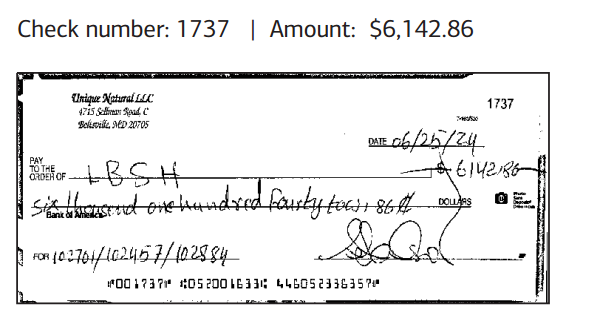 Check number: 1737 | Amount: $6,142.86
Unique Natural LLC
4715 Sellman Road, C
Beltsville, MD 20705
1737
DATE 06/25/24
PAY
TO THE
ORDER OF LBSH $ 6142.86
six thousand one hundred fourty two, 86 DOLLARS
Bank of America
FOR 102701/102457/102884
⑈001737⑈ ⑆052001633⑆ 446052336357⑈